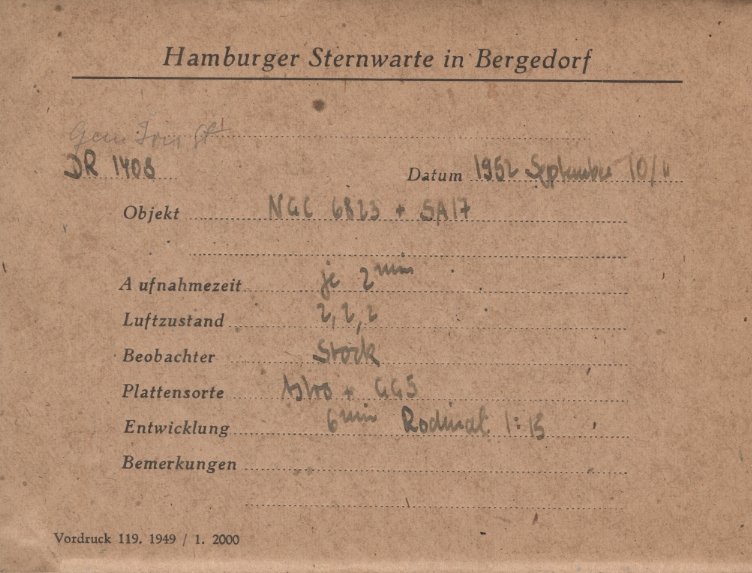 Hamburger Sternwarte in Bergedorf
DR 1408
Datum 1952 September 10/11
Objekt NGC 6823 + SA17
Aufnahmezeit je 2 min
Luftzustand 2, 2, 2
Beobachter Stock
Plattensorte Astro + GG5
Entwicklung 6 min Rodinal 1:15
Bemerkungen
Vordruck 119. 1949 / 1. 2000